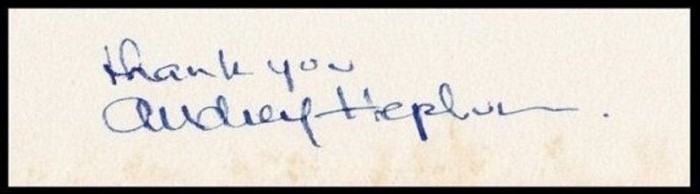 thank you
Audrey Hepburn.